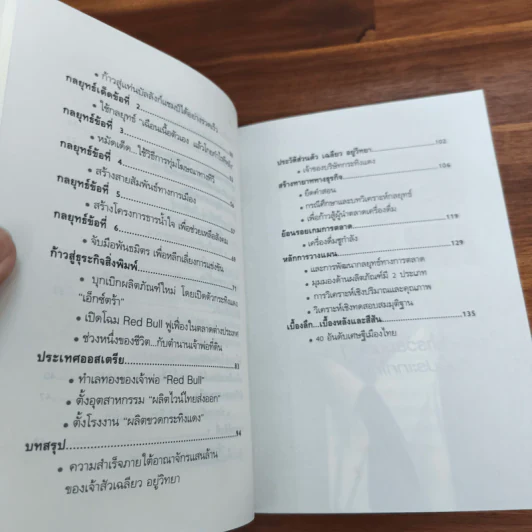 • ก้าวสู่แท่นบัลลังก์แชมป์ได้อย่างรวดเร็ว
กลยุทธ์เด็ดข้อที่ 2
• ใช้กลยุทธ์ "เฉือนเนื้อตัวเอง
กลยุทธ์ข้อที่ 3
• หมัดเด็ด...ใช้วิธีการทุ่มโฆษณาทางทีวี
กลยุทธ์ข้อที่ 4
• สร้างสายสัมพันธ์ทางการเมือง
กลยุทธ์ข้อที่ 5
• สร้างโครงการธารน้ำใจ เพื่อช่วยเหลือสังคม
กลยุทธ์ข้อที่ 6
• จับมือพันธมิตร เพื่อหลีกเลี่ยงการแข่งขัน
ก้าวสู่ธุรกิจสิ่งพิมพ์
• บุกเบิกผลิตภัณฑ์ใหม่ โดยเปิดตัวกระทิงแดง
"เอ็กซ์ตร้า"
• เปิดโฉม Red Bull ฟูเฟื่องในตลาดต่างประเทศ
• ช่วงหนึ่งของชีวิต...กับตำนานเจ้าพ่อที่ดิน
ประเทศออสเตรีย
• ทำเลทองของเจ้าพ่อ "Red Bull"
• ตั้งอุตสาหกรรม "ผลิตไวน์ไทยส่งออก"
• ตั้งโรงงาน "ผลิตขวดกระทิงแดง"
บทสรุป 94
• ความสำเร็จภายใต้อาณาจักรแสนล้าน
ของเจ้าสัวเฉลียว อยู่วิทยา
ประวัติส่วนตัว เฉลียว อยู่วิทยา 103
• เจ้าของบริษัทกระทิงแดง
สร้างทายาททางธุรกิจ 106
• ยึดคำสอน
• กรณีศึกษาและบทวิเคราะห์กลยุทธ์
• เพื่อก้าวสู่ผู้นำตลาดเครื่องดื่ม
ย้อนรอยเกมการตลาด 119
• เครื่องดื่มชูกำลัง
หลักการวางแผน 129
• และการพัฒนากลยุทธ์ทางการตลาด
• มุมมองด้านผลิตภัณฑ์มี 2 ประเภท
• การวิเคราะห์เชิงปริมาณและคุณภาพ
• วิเคราะห์เชิงทดสอบสมมุติฐาน
เบื้องลึก...เบื้องหลังและสีสัน 135
• 40 อันดับเศรษฐีเมืองไทย